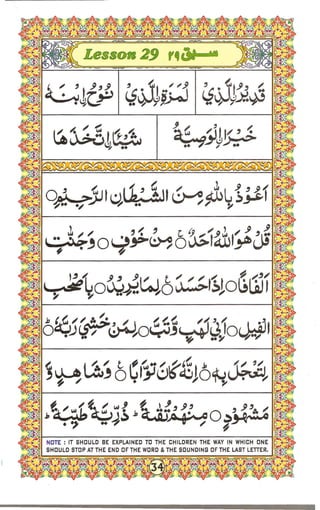 Lesson 29 سبق ۲۹
قَدِيْرُۨ الَّذِيْ لُمَزَةِۨ الَّذِيْ نُوْحُۨ ابْنَهٗ
خَيْرَاۨ الْوَصِيَّةُ شَيْئَاۨ اتَّخَذَهَا
اَعُوْذُ بِاللّٰهِ مِنَ الشَّيْطَانِ الرَّجِيْمِ○
قُلْ هُوَ اللّٰهُ اَحَدٌ○ مِنْ خَوْفٍ○ وَجَنّٰتٍ
اَلْفَافًا○ اِذَا حَسَدَ○ لِمَا يُرِيْدُ○ بِاَصْحٰبِ
الْفِيْلِ○ اَبِيْ لَهَبٍ وَّتَبَّ○ لِمَنْ خَشِيَ رَبَّهٗ○
لِتَعْجَلَ بِهٖ○ اِنَّهٗ كَانَ تَوَّابًا○ وَشَاهِدٍ وَّ
مَشْهُوْدٍ○ مِنْهُمْ تُقٰىةً ؕ ذُرِّيَّةً طَيِّبَةً ۚ
NOTE : IT SHOULD BE EXPLAINED TO THE CHILDREN THE WAY IN WHICH ONE
SHOULD STOP AT THE END OF THE WORD & THE SOUNDING OF THE LAST LETTER.
34